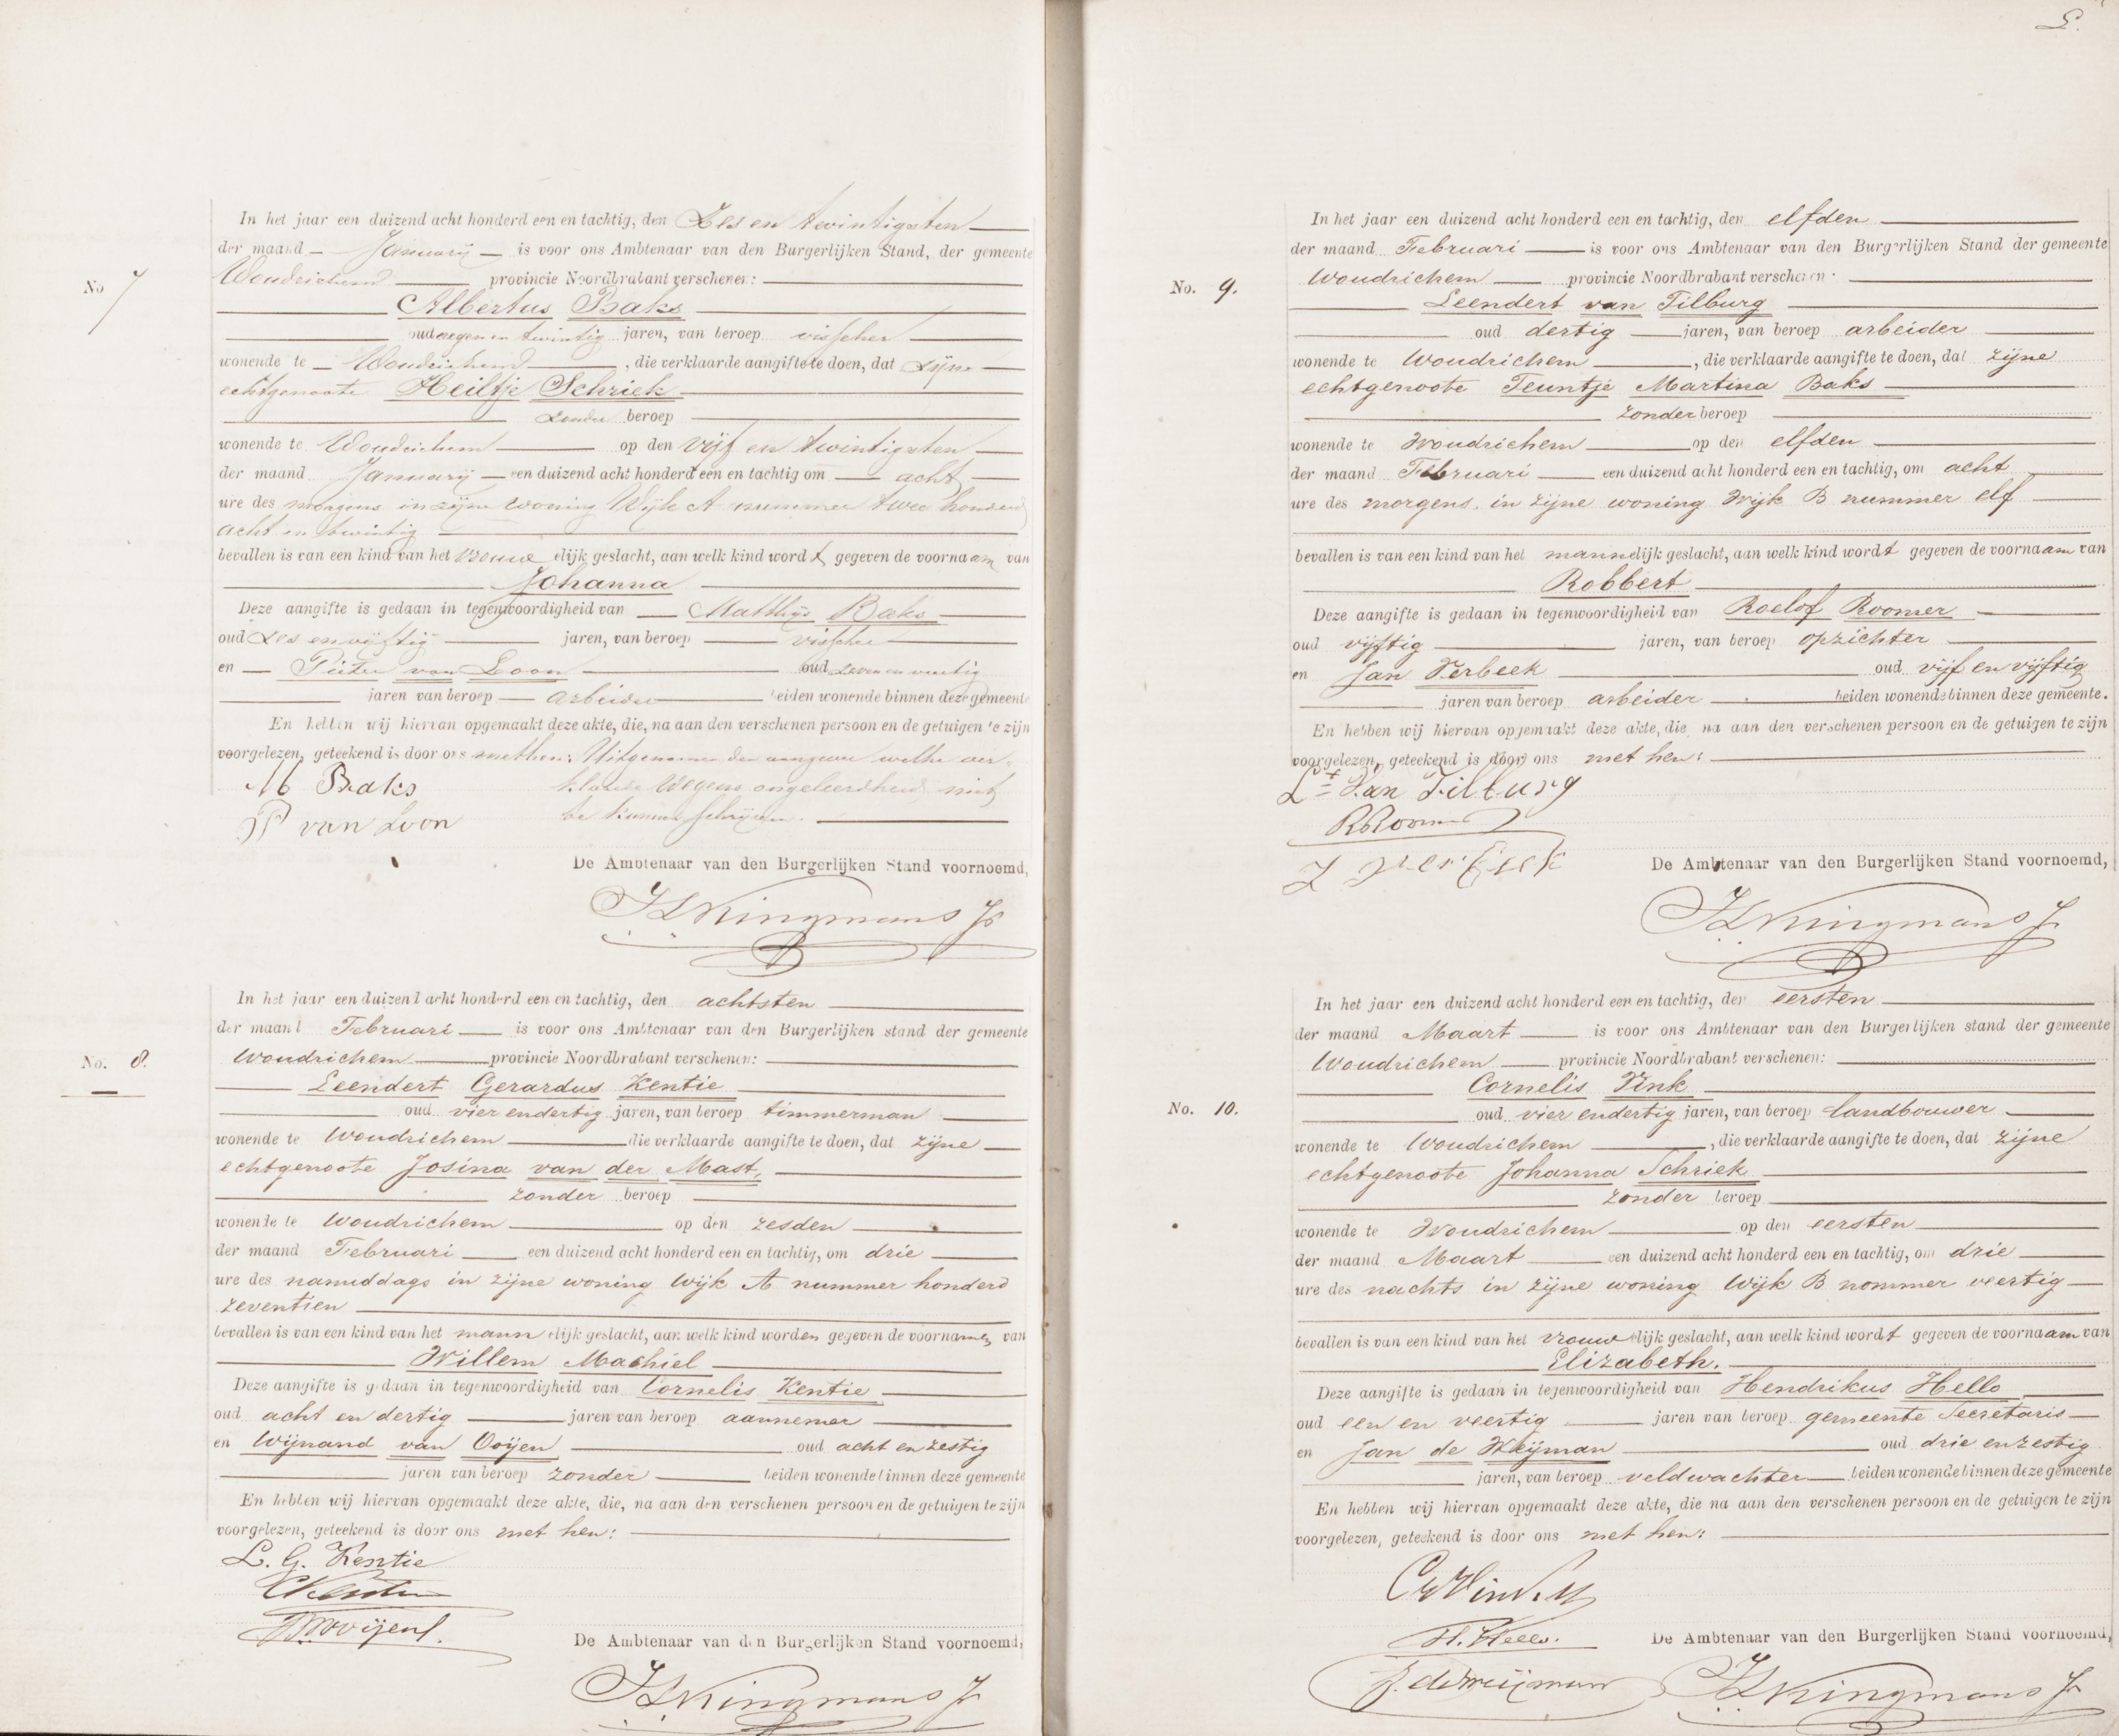 No 7
In het jaar een duizend acht honderd een en tachtig, den Zes en twintigsten
der maand Januarij is voor ons Ambtenaar van den Burgerlijken Stand, der gemeente
Woudrichem provincie Noordbrabant verschenen:
Albertus Baks
oud negen en twintig jaren, van beroep visscher
wonende te Woudrichem, die verklaarde aangifte te doen, dat zijne
echtgenoote Heiltje Schriek
zonder beroep
wonende te Woudrichem op den vijf en twintigsten
der maand Januarij een duizend acht honderd een en tachtig om acht
ure des morgens in zijne woning Wijk A nummer twee honderd
acht en twintig
bevallen is van een kind van het vrouwelijk geslacht, aan welk kind wordt gegeven de voornaam van
Johanna
Deze aangifte is gedaan in tegenwoordigheid van Matthijs Baks
oud zes en vijftig jaren, van beroep visscher
en Pieter van Loon oud zeven en veertig
jaren van beroep arbeider beiden wonende binnen deze gemeente
En hebben wij hiervan opgemaakt deze akte, die, na aan den verschenen persoon en de getuigen te zijn
voorgelezen, geteekend is door ons met hen: Uitgenomen den aangever welke ver-
klaarde wegens ongeleerdheid niet
te kunnen schrijven.
M Baks
P van Loon
De Ambtenaar van den Burgerlijken Stand voornoemd,
Kingmans Jr
No. 8.
In het jaar een duizend acht honderd een en tachtig, den achtsten
der maand Februari is voor ons Ambtenaar van den Burgerlijken stand der gemeente
Woudrichem provincie Noordbrabant verschenen:
Leendert Gerardus Kentie
oud vier en dertig jaren, van beroep timmerman
wonende te Woudrichem die verklaarde aangifte te doen, dat zijne
echtgenoote Josina van der Mast,
zonder beroep
wonende te Woudrichem op den zesden
der maand Februari een duizend acht honderd een en tachtig, om drie
ure des namiddags in zijne woning Wijk A nummer honderd
zeventien
bevallen is van een kind van het mannelijk geslacht, aan welk kind worden gegeven de voornamen van
Willem Machiel
Deze aangifte is gedaan in tegenwoordigheid van Cornelis Kentie
oud acht en dertig jaren van beroep aannemer
en Wijnand van Ooijen oud acht en zestig
jaren van beroep zonder beiden wonende binnen deze gemeente
En hebben wij hiervan opgemaakt deze akte, die, na aan den verschenen persoon en de getuigen te zijn
voorgelezen, geteekend is door ons met hen:
L. G. Kentie
CKentie
De Ambtenaar van den Burgerlijken Stand voornoemd,
Kingmans Jr
No. 9.
In het jaar een duizend acht honderd een en tachtig, den elfden
der maand Februari is voor ons Ambtenaar van den Burgerlijken Stand der gemeente
Woudrichem provincie Noordbrabant verschenen:
Leendert van Tilburg
oud dertig jaren, van beroep arbeider
wonende te Woudrichem, die verklaarde aangifte te doen, dat zijne
echtgenoote Teuntje Martina Baks
zonder beroep
wonende te Woudrichem op den elfden
der maand Februari een duizend acht honderd een en tachtig, om acht
ure des morgens, in zijne woning Wijk B nummer elf
bevallen is van een kind van het mannelijk geslacht, aan welk kind wordt gegeven de voornaam van
Robbert
Deze aangifte is gedaan in tegenwoordigheid van Roelof Roomer
oud vijftig jaren, van beroep opzichter
en Jan Verbeek oud vijf en vijftig
jaren van beroep arbeider beiden wonende binnen deze gemeente.
En hebben wij hiervan opgemaakt deze akte, die, na aan den verschenen persoon en de getuigen te zijn
voorgelezen, geteekend is door ons met hen:
Lt Van Tilburg
RRoomer
J verbeek
De Ambtenaar van den Burgerlijken Stand voornoemd,
Kingmans Jr
No. 10.
In het jaar een duizend acht honderd een en tachtig, den eersten
der maand Maart is voor ons Ambtenaar van den Burgerlijken stand der gemeente
Woudrichem provincie Noordbrabant verschenen:
Cornelis Vink
oud vier en dertig jaren, van beroep landbouwer
wonende te Woudrichem, die verklaarde aangifte te doen, dat zijne
echtgenoote Johanna Schriek
zonder beroep
wonende te Woudrichem op den eersten
der maand Maart een duizend acht honderd een en tachtig, om drie
ure des nachts in zijne woning Wijk B nommer veertig
bevallen is van een kind van het vrouwelijk geslacht, aan welk kind wordt gegeven de voornaam van
Elizabeth.
Deze aangifte is gedaan in tegenwoordigheid van Hendrikus Hello
oud een en veertig jaren van beroep gemeente Secretaris
en Jan de Weijman oud drie en zestig
jaren, van beroep veldwachter beiden wonende binnen deze gemeente
En hebben wij hiervan opgemaakt deze akte, die na aan den verschenen persoon en de getuigen te zijn
voorgelezen, geteekend is door ons met hen:
H. Hello.
J. de Weijman
De Ambtenaar van den Burgerlijken Stand voornoemd,
Kingmans Jr